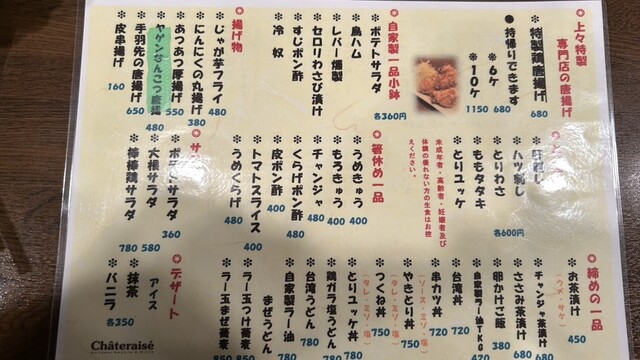 ◎上々特製
専門店の唐揚げ
※特製鶏唐揚げ 680
●持帰りできます
※6ケ 680
※10ケ 1150
◎自家製一品小鉢
各360円
※ポテトサラダ
※鳥ハム
※レバー燻製
※セロリわさび漬け
※すじポン酢
※冷奴
◎揚げ物
※じゃが芋フライ 480
※にんにくの丸揚げ 380
※あつあつ厚揚げ 550
※ヤゲンなんこつ唐揚 480
※手羽先の唐揚げ 650
※皮串揚げ 160
※ハツ刺し
※とりわさ
※ももタタキ
※とりユッケ
各600円
未成年者・高齢者・妊娠者及び
体調の優れない方の生食はお控
えください。
◎箸休め一品
※うめきゅう 400
※もろきゅう 400
※チャンジャ 480
※くらげポン酢 480
※皮ポン酢 400
※トマトスライス 400
※うめくらげ 480
※ポテトサラダ 360
※大根サラダ 580
※棒棒鶏サラダ 780
◎締めの一品
※お茶漬け 450
(ウメ・サケ)
※チャンジャ茶漬け
※ささみ茶漬け 680
※卵かけご飯 380
※自家製ラー油TKG 420
※台湾丼 720
※串カツ丼 720
(ソース・ミソ・塩)
※やきとり丼 750
(タレ・ミソ・塩)
※つくね丼 750
(タレ・ミソ・塩)
※とりユッケ丼 780
※鶏ガラ塩うどん 780
※台湾うどん 780
※自家製ラー油
まぜうどん 780
※ラー玉つけ蕎麦 850
※ラー玉まぜ蕎麦 850
◎デザート
アイス
※抹茶
※バニラ
各350
Châteraisé